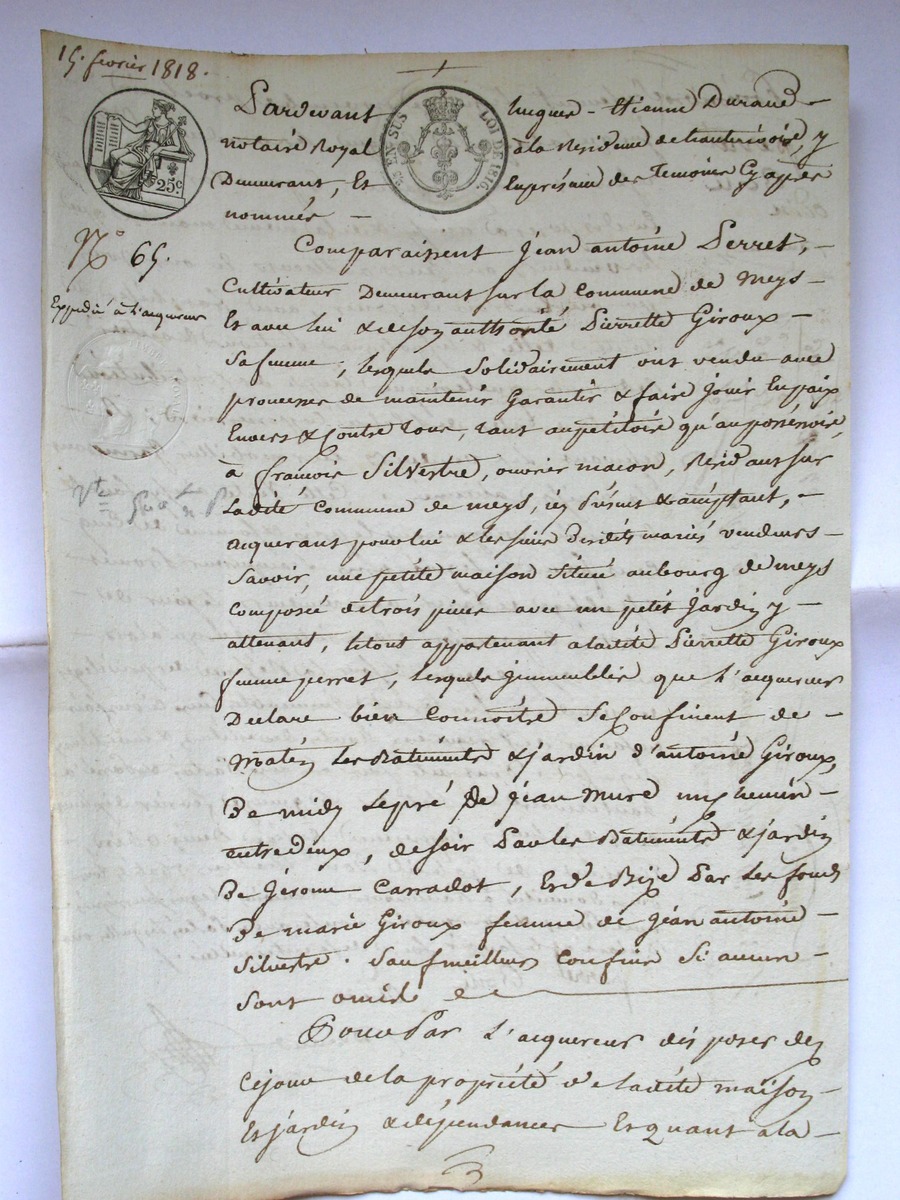 15. fevrier 1818.
Pardevant hugues - Etienne Durand -
notaire Royal à la Residence de hauterivoire, y
Demeurant, Et En présence des Temoins Cy après
nommés -
EN SUS LOI DE 1816.
25c.
N° 65.
Expedié à l'acquereur
Comparaissent Jean antoine Perret, -
Cultivateur Demeurant sur la Commune de Meys -
Et avec lui & de son authorité Pierrette Giroux -
Sa femme, lesquels Solidairement ont vendu avec
promesses de maintenir Garantir & faire Jouir En paix
Envers & Contre tous, tant au petitoire qu'au possessoire,
à françois Silvestre, ouvrier macon, Residant sur
Ladite Commune de meys, icy Présent & acceptant, -
acquerant pour lui & les siens Desdits mariés vendeurs -
Savoir, une petite maison située au bourg de meys
Composée de trois pieces avec un petit Jardin y -
attenant, le tout appartenant a ladite Pierrette Giroux
femme perret, lesquels jmmeubles que L'acquereur
Declare bien Connoitre Se Confinent de -
Matin Les Batiments & jardin d'antoine Giroux,
De midy Le pré de Jean Mure un chemin -
entredeux, de soir Par les Batiments & jardin
De Jérome Carradot, Et de Bize Par Les fonds
De marie Giroux femme de Jean antoine -
Silvestre. Sauf meilleurs Confins Si aucuns -
Sont omis
Pour Par L'acquereur disposer dez
Cejour de la propriété de Ladite maison
Et jardin & dépendances Et quant a la -